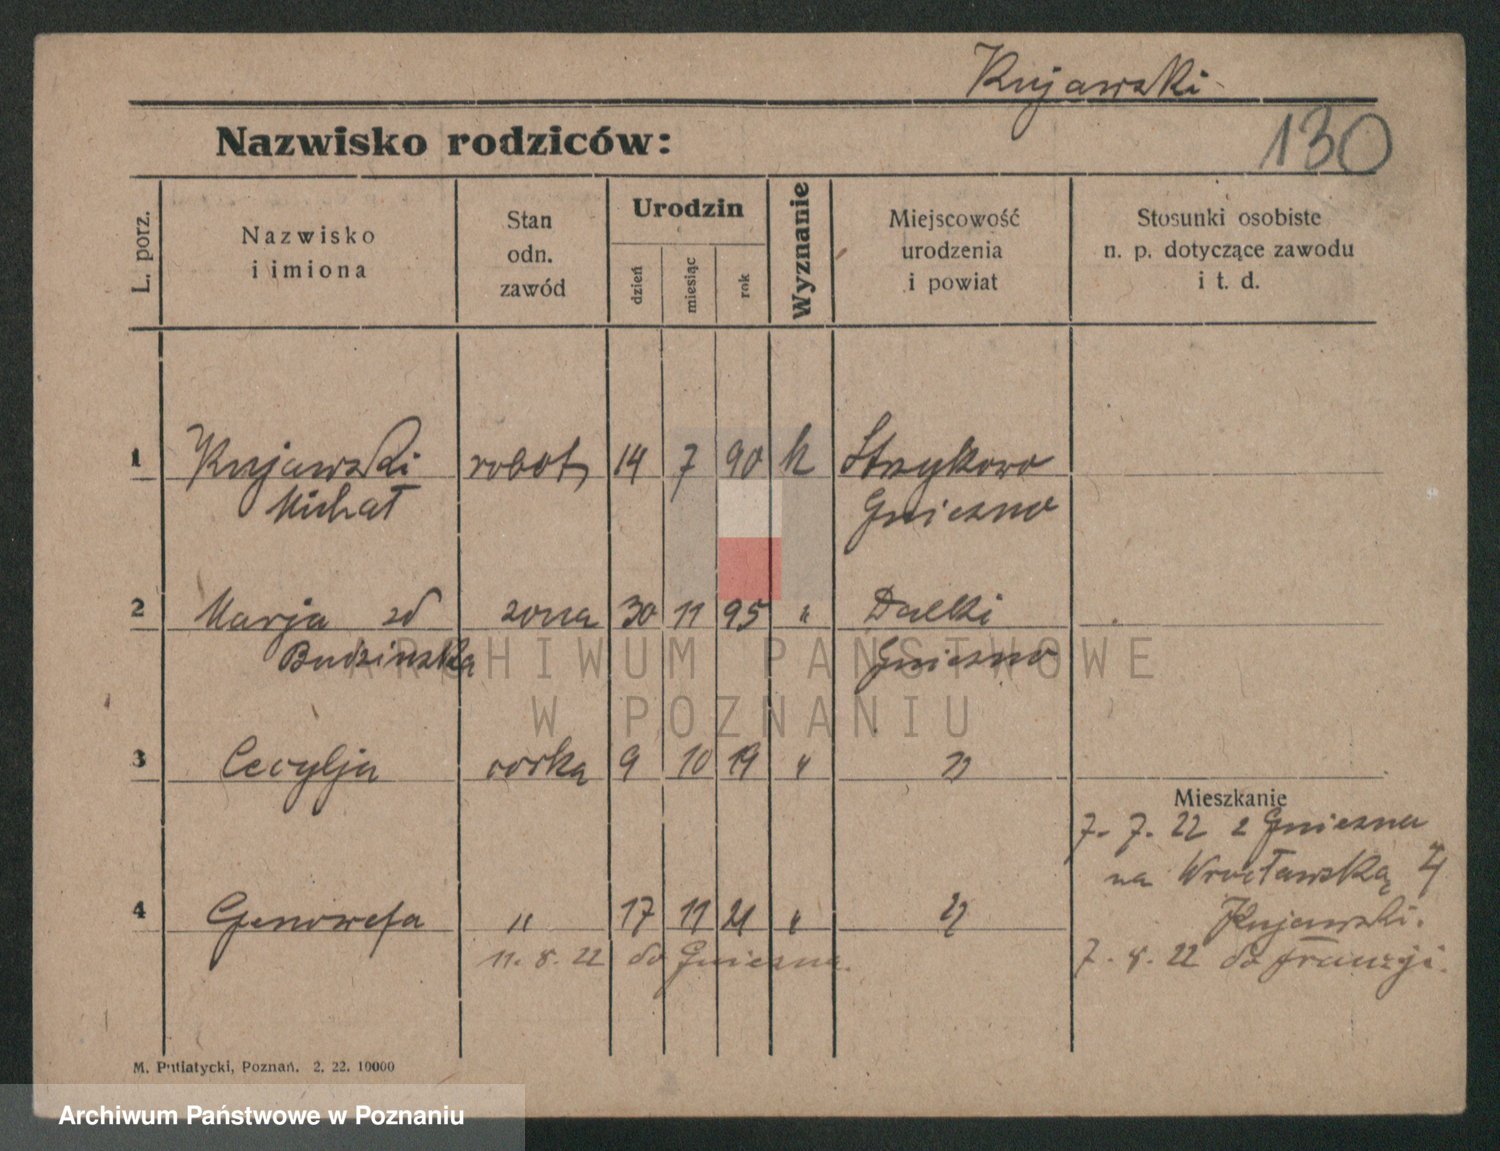 Kujawski
130
Nazwisko rodziców:
L. porz.
Nazwisko
i imiona
Stan
odn.
zawód
Urodzin
dzień
miesiąc
rok
Wyznanie
Miejscowość
urodzenia
i powiat
Stosunki osobiste
n. p. dotyczące zawodu
i t. d.
1 Kujawski robot, 14 7 90 k
Michał Gniezno
2 Marja żona 30 11 95 " Dalki
Budzinska Gniezno
3 Cecylja corka 9 10 19 " "
Mieszkanie
7. 7. 22 z Gniezna
na Wrocławską
4 Genowefa " 17 11 21 " "
Kujawski.
11. 8. 22 do Gniezna.
7. 8. 22 do Francji.
M. Putiatycki, Poznań. 2. 22. 10000
ARCHIWUM PAŃSTWOWE
W POZNANIU
Archiwum Państwowe w Poznaniu